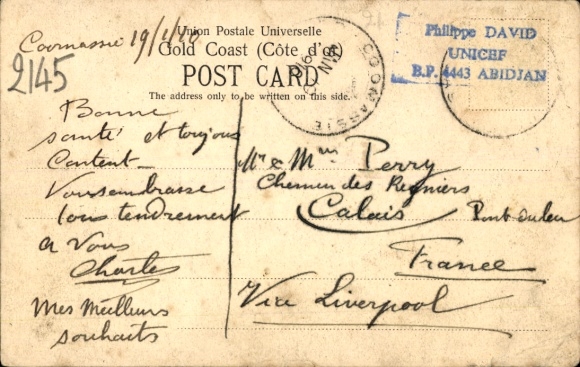 Coomassie 19/1/
2145
Union Postale Universelle
Gold Coast (Côte d'or)
POST CARD
The address only to be written on this side.
COOMASSIE
Philippe DAVID
UNICEF
B.P. 4443 ABIDJAN
Bonne
santé et toujous
Content_
Vous embrasse
tous tendrement
a Vous
Charles
Mes Meilleurs
souhaits
Mr & Mme Perry
Chemin des Regniers
Calais Pont du leu
France
Via Liverpool